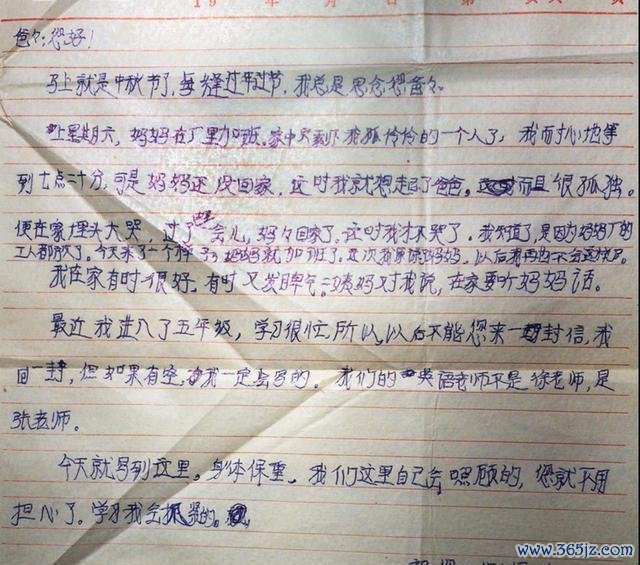 19 年 月 日 第 页共 页
爸々：您好！
马上就是中秋节了，每缝过年过节，我总是思念您爸々。
上星期六，妈妈在厂里加班，家中只剩下我孤伶伶的一个人了，我而心地等
到七点二十分，可是妈妈还没回家，这时我就想起了爸爸，而且很孤独。
便在家埋头大哭，过了一会儿，妈々回家了。这时我才不哭了。我知道了，是因为妈妈厂的
工人都放了。今天来了一个样子，妈妈就加班了。这次我错怪妈妈，以后我再也不会这样了。
我在家有时很好，有时又发脾气。姨妈对我说，在家要听妈妈话。
最近我进入了五年级，学习很忙，所以，以后不能您来一封信，我
回一封，但如果有空，我一定会写的。我们的英语老师不是徐老师，是
张老师。
今天就写到这里。身体保重。我们这里自己会照顾的，您就不用
担心了。学习我会抓紧的。
www.365jz.com